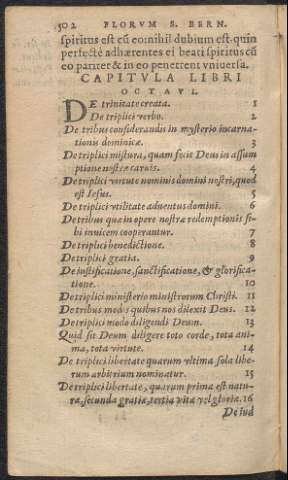 502 FLORVM S. BERN.
spiritus est cū eo: nihil dubium est quin
perfectè adhærentes ei beati spiritus cū
eo pariter & in eo penetrent vniuersa.
CAPITVLA LIBRI
OCTAVI.
DE trinitate creata. 1
De triplici verbo. 2
De tribus considerandis in mysterio incarna-
tionis dominicæ. 3
De triplici mistura, quam fecit Deus in assum
ptione nostræ carnis. 4
De triplici virtute nominis domini nostri, quod
est Iesus. 5
De triplici vtilitate aduentus domini. 6
De tribus quæ in opere nostræ redemptionis si-
bi inuicem cooperantur. 7
De triplici benedictione. 8
De triplici gratia. 9
De iustificatione, sanctificatione, & glorifica-
tione. 10
De triplici ministerio ministrorum Christi. 11
De tribus modis quibus nos dilexit Deus. 12
De triplici modo diligendi Deum. 13
Quid sit Deum diligere toto corde, tota ani-
ma, tota virtute. 14
De triplici libertate quarum vltima sola libe-
rum arbitrium nominatur. 15
De triplici libertate, quarum prima est natu-
ra, secunda gratiæ, tertia vitæ vel gloriæ. 16
De iud